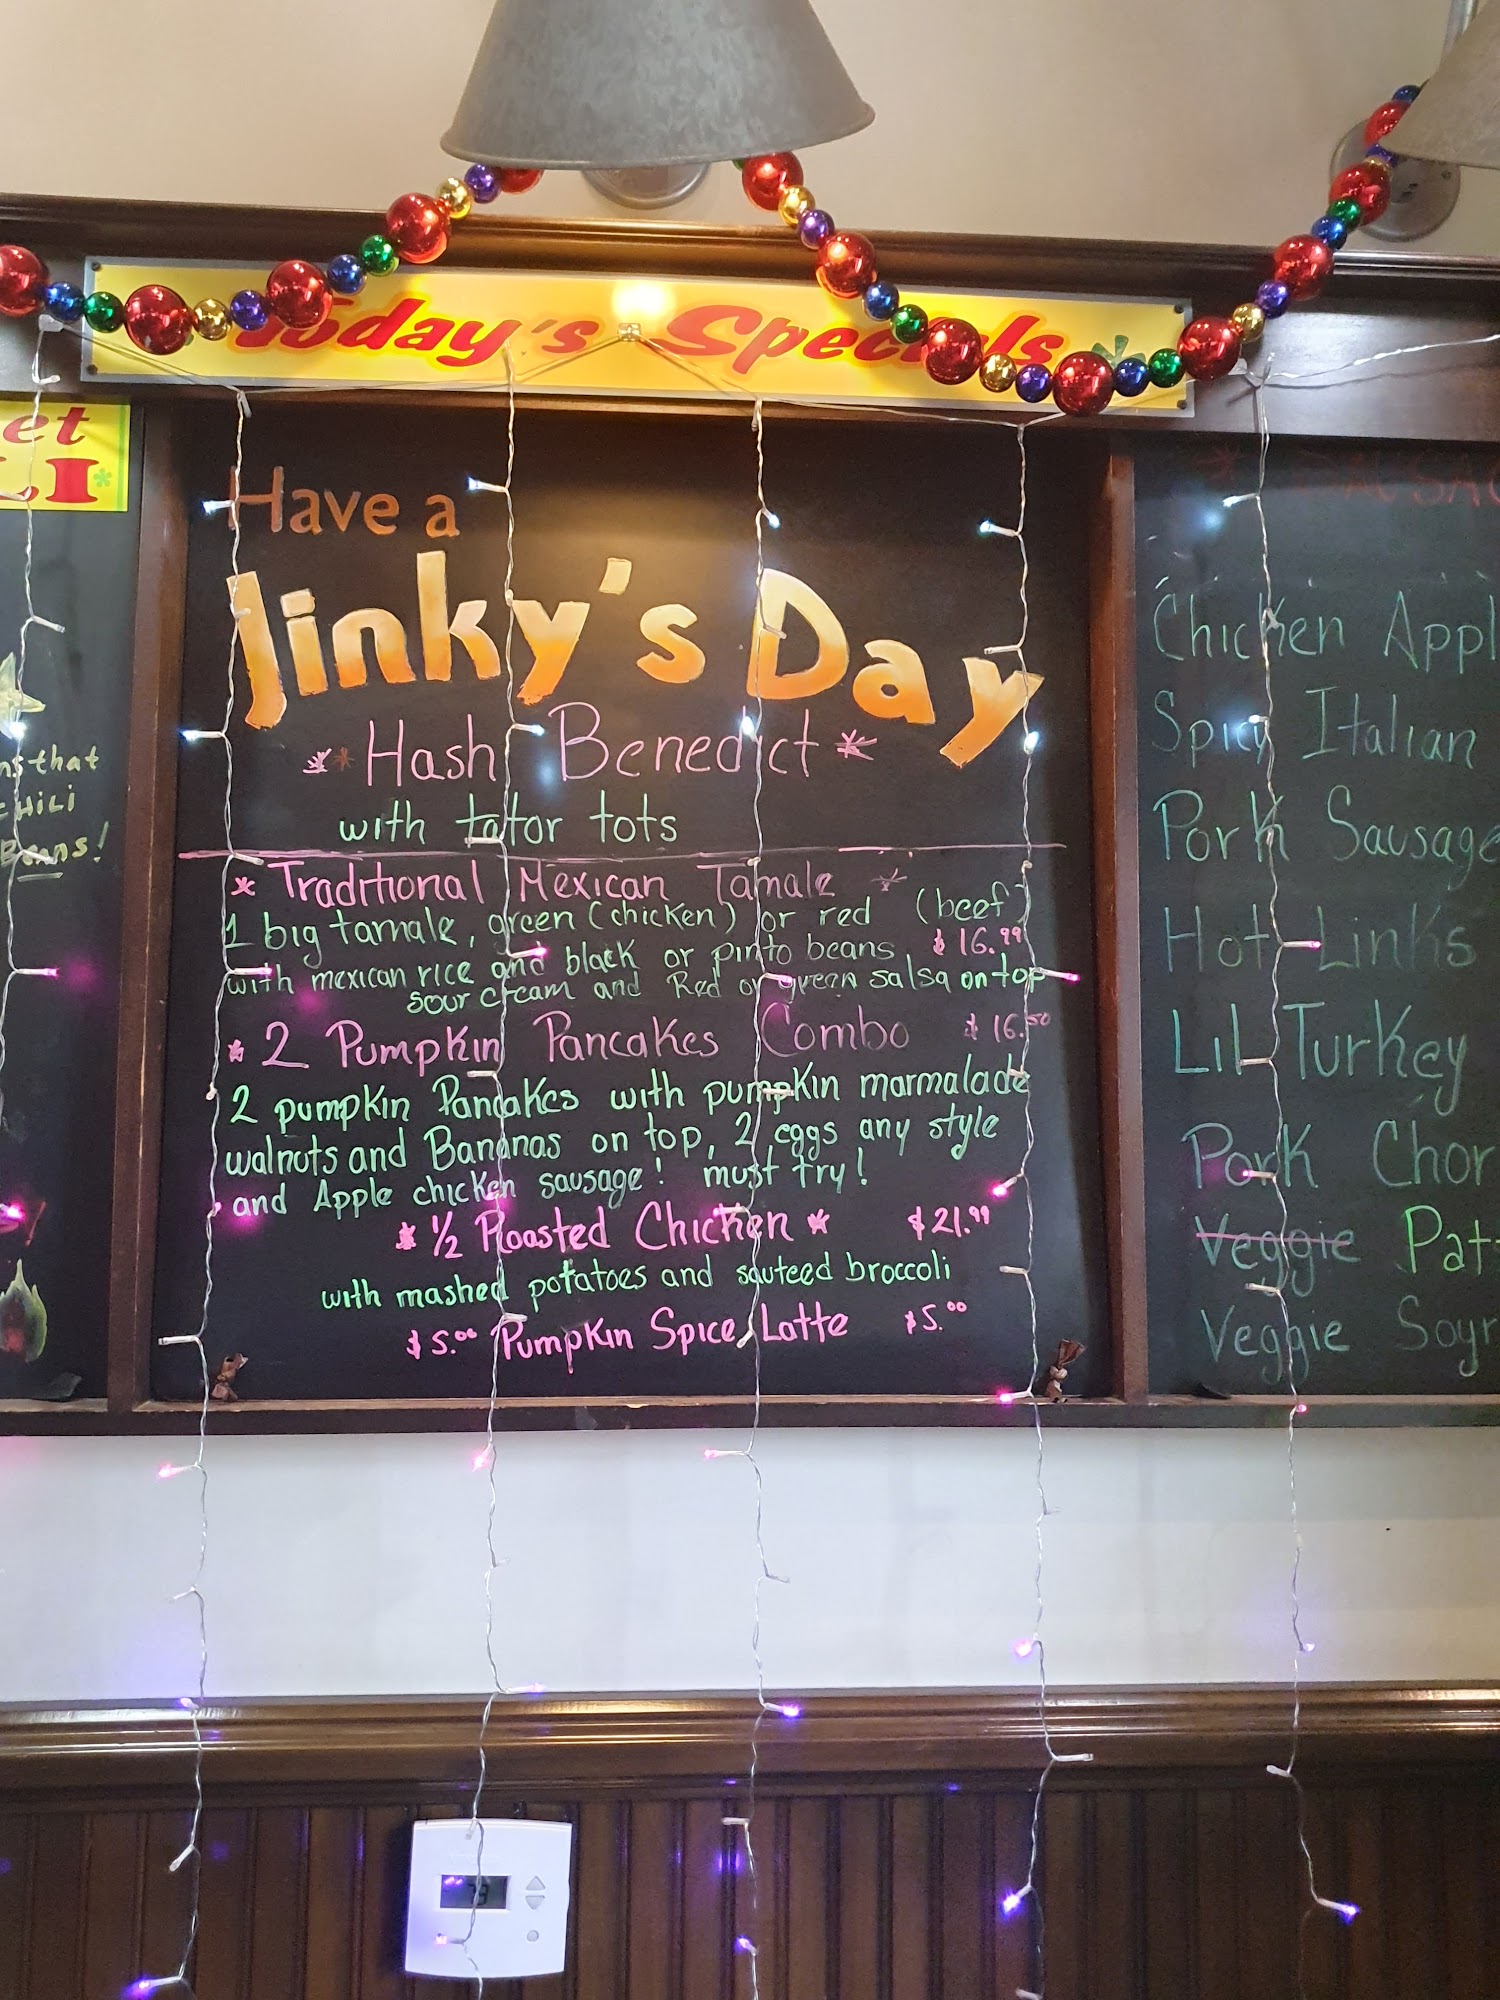 Today's Specials
et
LI
that
CHILI
Beans!
Have a
Jinky's Day
* * Hash Benedict *
with tator tots
* Traditional Mexican Tamale *
1 big tamale, green (chicken) or red (beef)
with mexican rice and black or pinto beans $16.99
sour cream and Red or green salsa on top
* 2 Pumpkin Pancakes Combo $16.50
2 pumpkin Pancakes with pumpkin marmalade
walnuts and Bananas on top, 2 eggs any style
and Apple chicken sausage! must try!
* 1/2 Roasted Chicken * $21.99
with mashed potatoes and sauteed broccoli
$5.00 Pumpkin Spice Latte $5.00
Chicken Appl
Spicy Italian
Pork Sausage
Hot Links
Lil Turkey
Pork Chor
Veggie Pat
Veggie Soyr